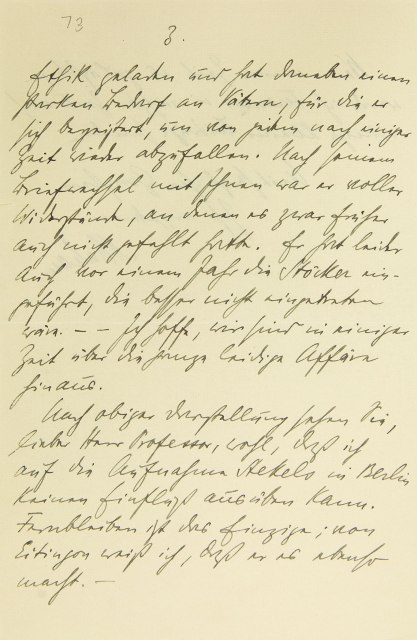 73
3.
Ethik geladen und hat daneben einen
starken Bedarf an Vätern, für die er
sich begeistert, um von jedem nach einiger
Zeit wieder abzufallen. Nach seinem
Briefwechsel mit Ihnen war er voller
Widerstände, an denen es zwar früher
auch nicht gefehlt hatte. Er hat leider
auch vor einem Jahr die Stöcker ein-
geführt, die besser nicht eingetreten
wäre. – – Ich hoffe, wir sind in einiger
Zeit über die ganze leidige Affäre
hinaus.
Nach obiger Darstellung sehen Sie,
lieber Herr Professor, wohl, daß ich
auf die Aufnahme Stekels in Berlin
keinen Einfluß ausüben kann.
Fernbleiben ist das Einzige; von
Eitingon weiß ich, daß er es ebenso
macht. –